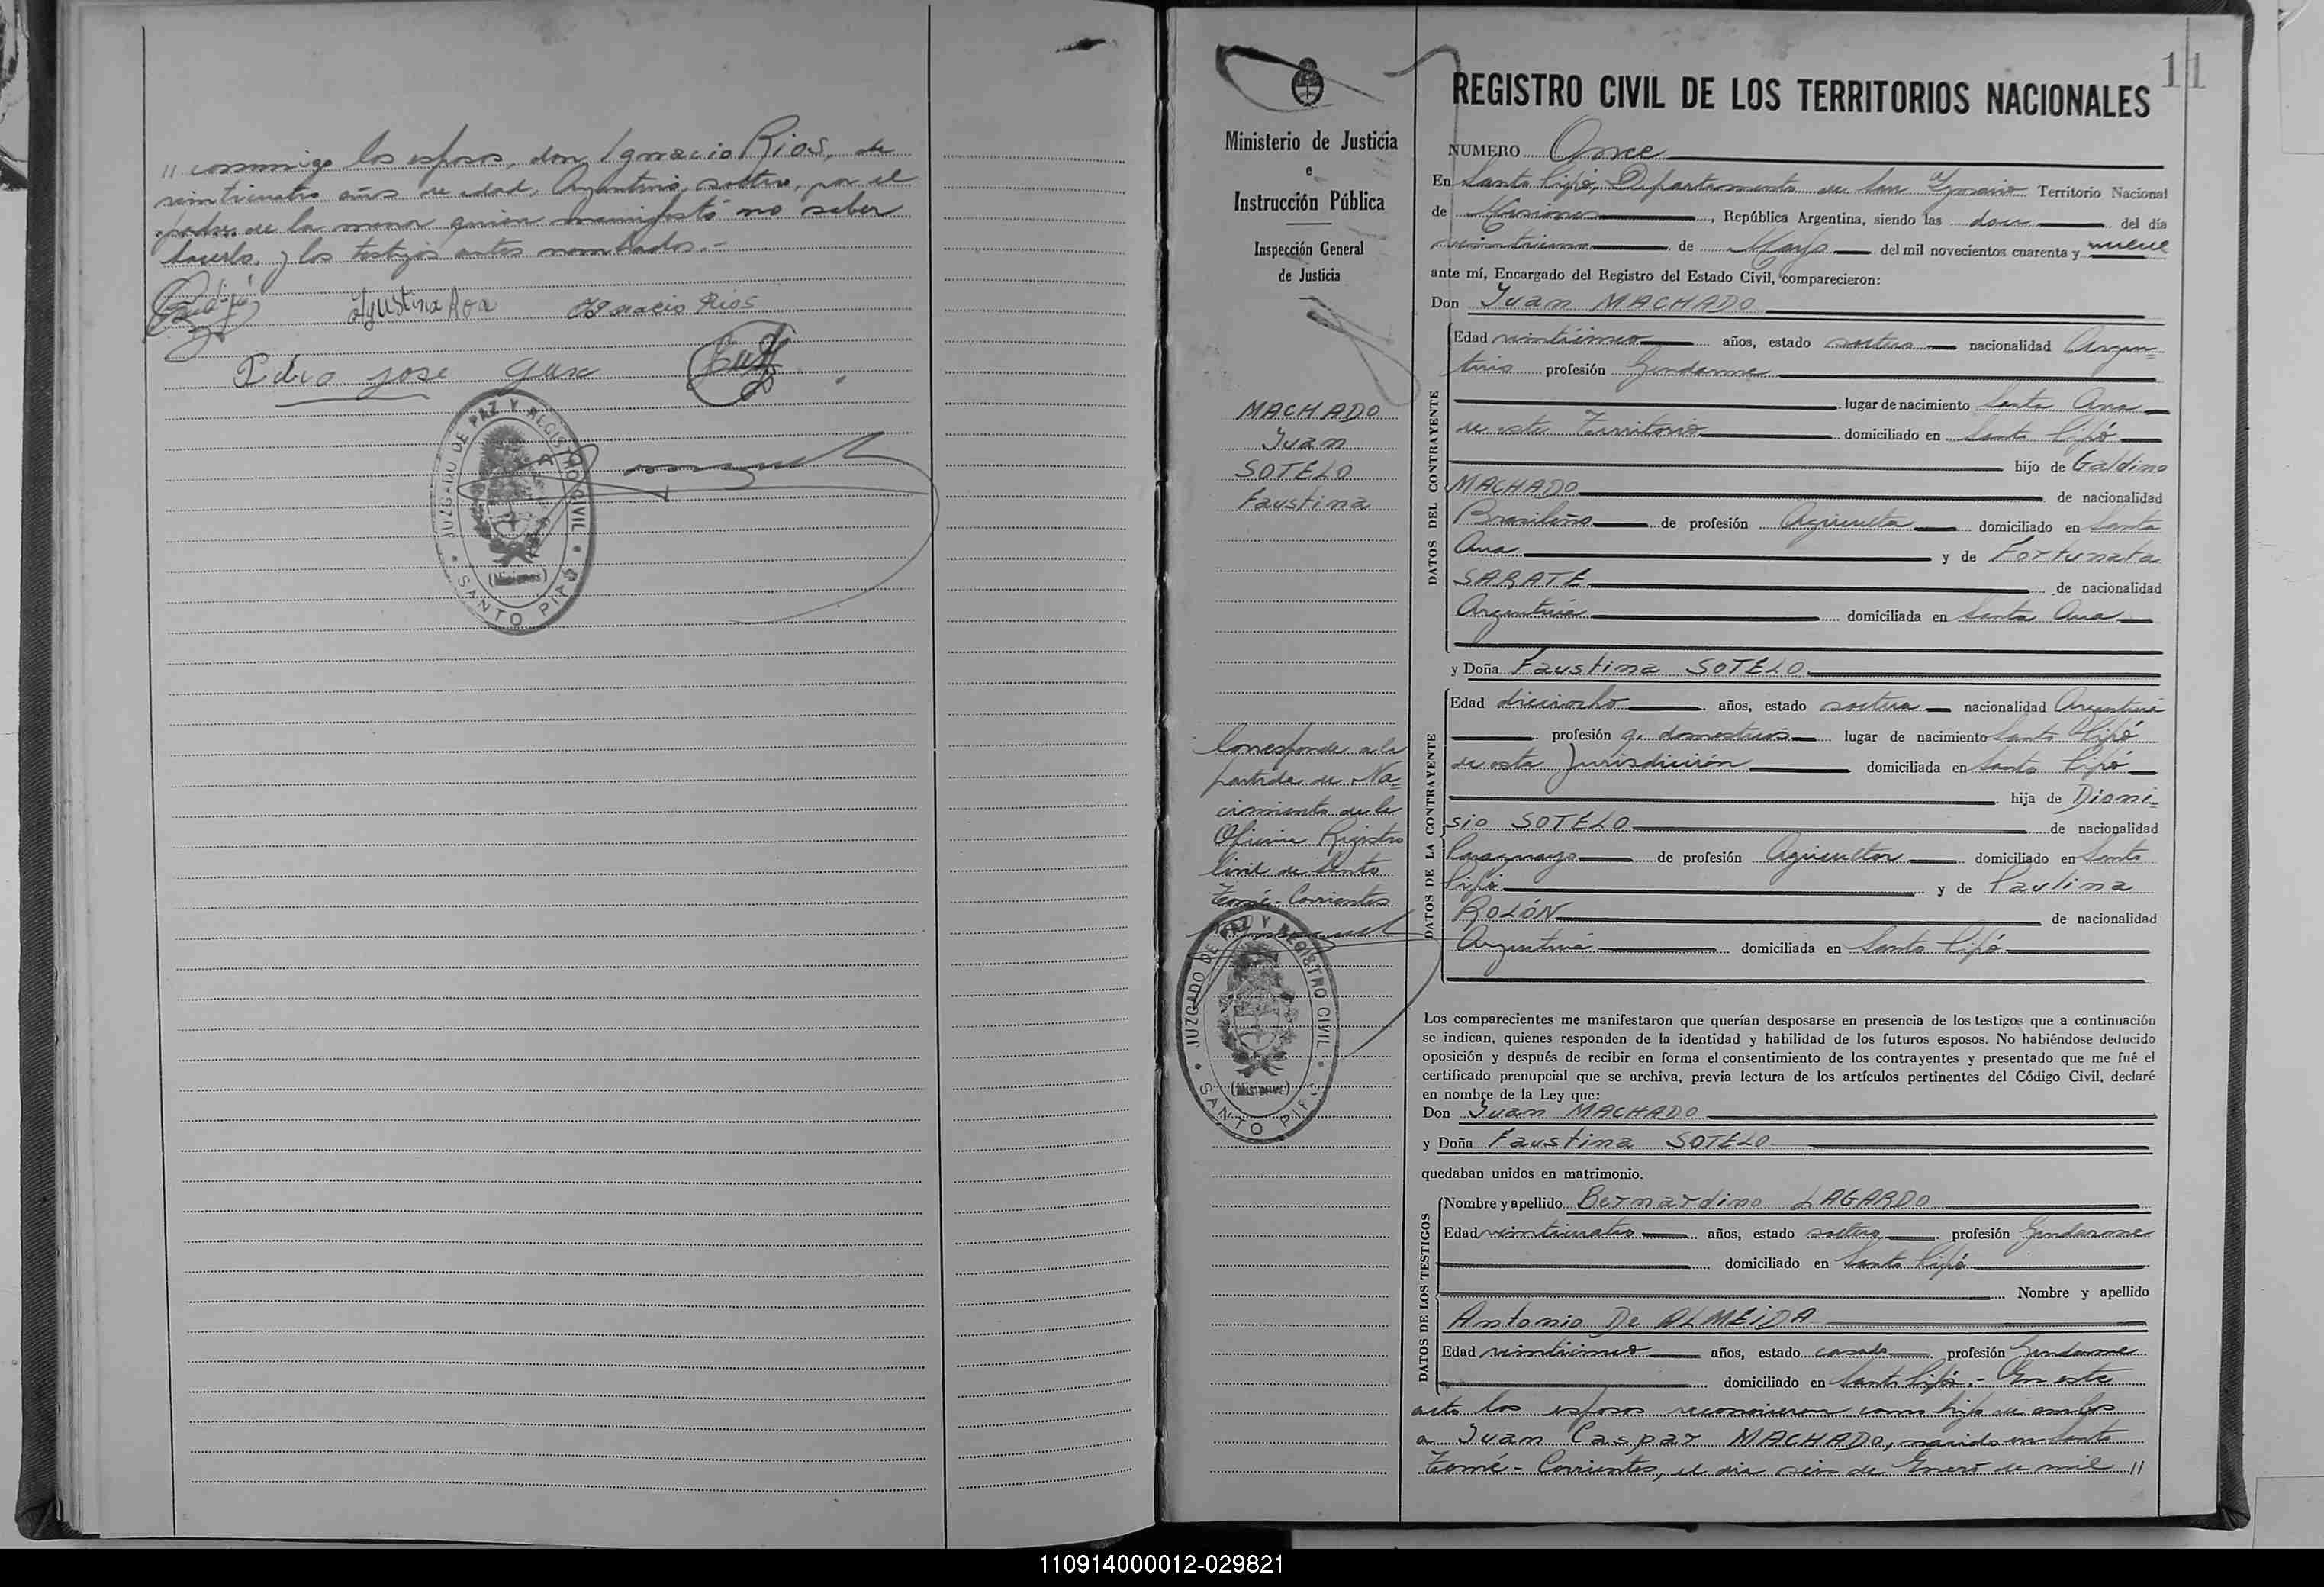 " conmigo los esposos, don Ignacio Rios, de
veinticuatro años de edad, Argentino, soltero, por el
padre de la menor quien manifestó no saber
hacerlo, y los testigos antes nombrados.-
Agustina Roa Ignacio Rios
Pedro José
JUZGADO DE PAZ Y REGISTRO CIVIL
(Misiones)
SANTO PIPÓ
11
Ministerio de Justicia
e
Instrucción Pública
Inspección General
de Justicia
MACHADO
Juan
SOTELO
Faustina
Corresponde a la
partida de Na=
cimiento de la
Oficina Registro
Civil de Santo
Tomé- Corrientes
JUZGADO DE PAZ Y REGISTRO CIVIL
(Misiones)
SANTO PIPÓ
REGISTRO CIVIL DE LOS TERRITORIOS NACIONALES
NUMERO Once
En Santo Pipó, Departamento de San Ignacio Territorio Nacional
de Misiones, República Argentina, siendo las doce del día
de Mayo del mil novecientos cuarenta y nueve
ante mí, Encargado del Registro del Estado Civil, comparecieron:
Don Juan MACHADO
DATOS DEL CONTRAYENTE
Edad años, estado soltero nacionalidad Argen=
tino profesión Gendarme
lugar de nacimiento Santa Ana
de este Territorio domiciliado en Santo Pipó
hijo de Galdino
MACHADO de nacionalidad
Brasileño de profesión Agricultor domiciliado en Santa
Ana y de Fortunata
SARATE de nacionalidad
Argentina domiciliada en Santa Ana
y Doña Faustina SOTELO
DATOS DE LA CONTRAYENTE
Edad dieciocho años, estado soltera nacionalidad Argentina
profesión q. domesticos lugar de nacimiento Santo Pipó
de esta Jurisdicción domiciliada en Santo Pipó
hija de Dioni=
sio SOTELO de nacionalidad
Paraguayo de profesión Agricultor domiciliado en Santo
Pipó y de Paulina
ROLÓN de nacionalidad
Argentina domiciliada en Santo Pipó
Los comparecientes me manifestaron que querían desposarse en presencia de los testigos que a continuación
se indican, quienes responden de la identidad y habilidad de los futuros esposos. No habiéndose deducido
oposición y después de recibir en forma el consentimiento de los contrayentes y presentado que me fué el
certificado prenupcial que se archiva, previa lectura de los artículos pertinentes del Código Civil, declaré
en nombre de la Ley que:
Don Juan MACHADO
y Doña Faustina SOTELO
quedaban unidos en matrimonio.
DATOS DE LOS TESTIGOS
Nombre y apellido Bernardino LAGARDO
Edad veinticuatro años, estado soltero profesión Gendarme
domiciliado en Santo Pipó
Nombre y apellido
Antonio De ALMEIDA
Edad años, estado casado profesión Gendarme
domiciliado en Santo Pipó.- En este
acto los esposos reconocieron como hijo de ambos
a Juan Caspar MACHADO, nacido en Santo
Tomé- Corrientes, el dia seis de Enero de mil "
110914000012-029821